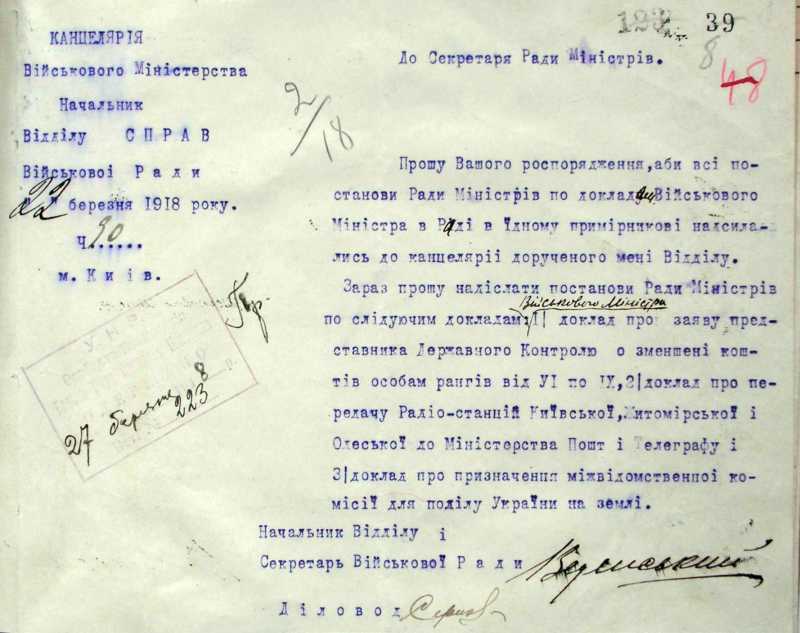 39
8
48
КАНЦЕЛЯРІЯ
Військового Міністерства
Начальник
Відділу СПРАВ
Військової Ради
22 березня 1918 року.
Ч 90......
м. Київ.
2/18
До Секретаря Ради Міністрів.
Прошу Вашого роспорядження,аби всі по-
станови Ради Міністрів по докладам Військового
Міністра в Раді в їдному примірникові надсила-
лись до канцелярії дорученого мені Відділу.
Зараз прошу надіслати постанови Ради Міністрів
Військового Міністра
по слідуючим докладам: 1| доклад про заяву пред-
ставника Державного Контролю о зменшені кош-
тів особам рангів від УІ по ІХ, 2|доклад про пе-
редачу Радіо-станцій Київської, Житомірської і
Одеської до Міністерства Пошт і Телеграфу і
3|доклад про призначення міжвідомственної ко-
місії для поділу України на землі.
27 березня 8
223
Начальник Відділу і
Секретарь Військової Ради
Діловод